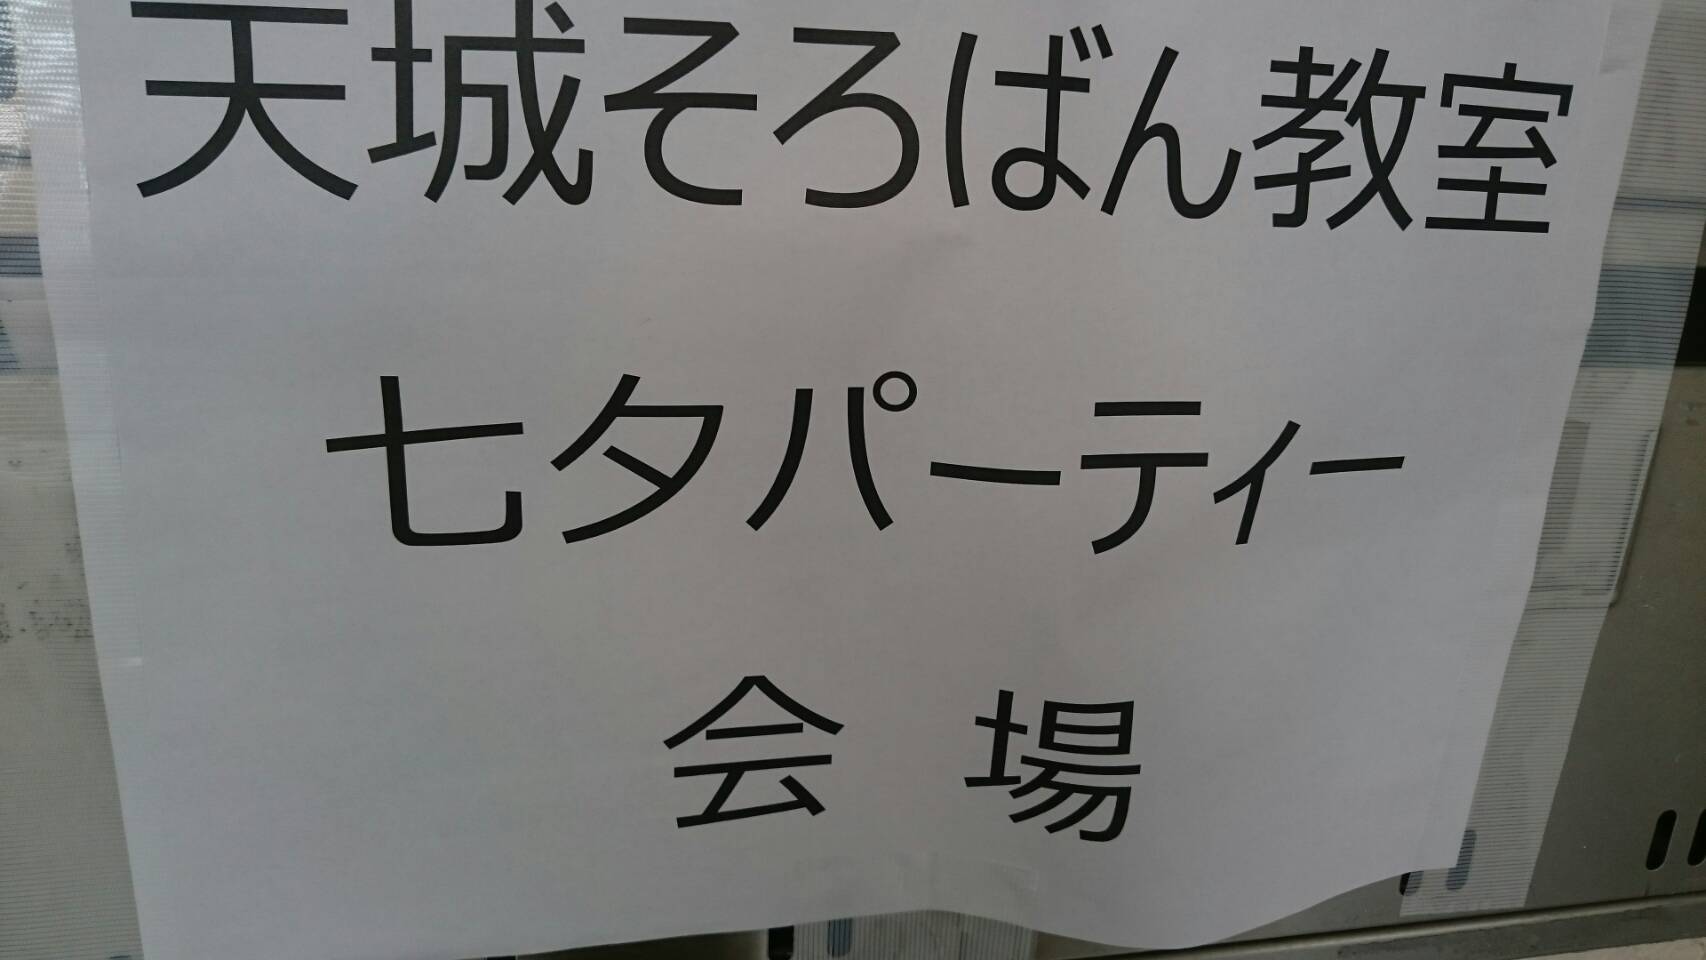 天城そろばん教室
七夕パーティー
会場